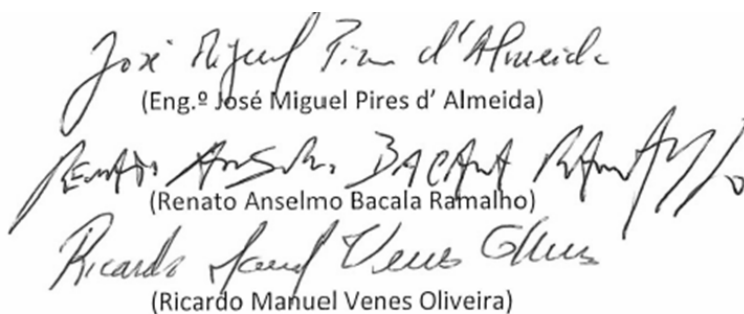 José Miguel Pires d'Almeida
(Eng.º José Miguel Pires d' Almeida)
Renato Anselmo Bacala Ramalho
(Renato Anselmo Bacala Ramalho)
Ricardo Manuel Venes Oliveira
(Ricardo Manuel Venes Oliveira)